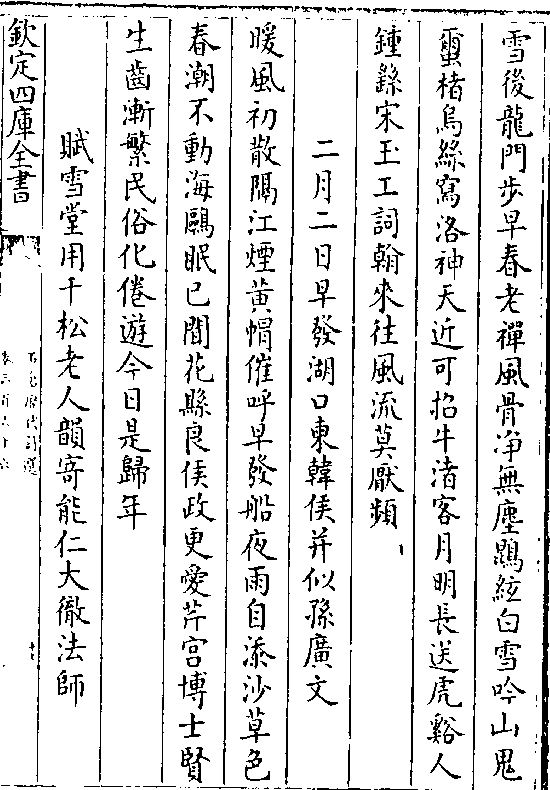 雪後龍門步早春老禪風骨净無塵鵾絃白雪吟山鬼
蠒楮烏絲寫洛神天近可招牛渚客月明長送虎谿人
鍾繇宋玉工詞翰來往風流莫厭頻
二月二日早發湖口東韓侯并似孫廣文
暖風初散隔江煙黄㡌催呼早發船夜雨自添沙草色
春潮不動海鷗眠已聞花縣良侯政更愛芹宫博士賢
生齒漸繁民俗化倦遊今日是歸年
賦雪堂用千松老人韻寄能仁大徹法師
欽定四庫全書